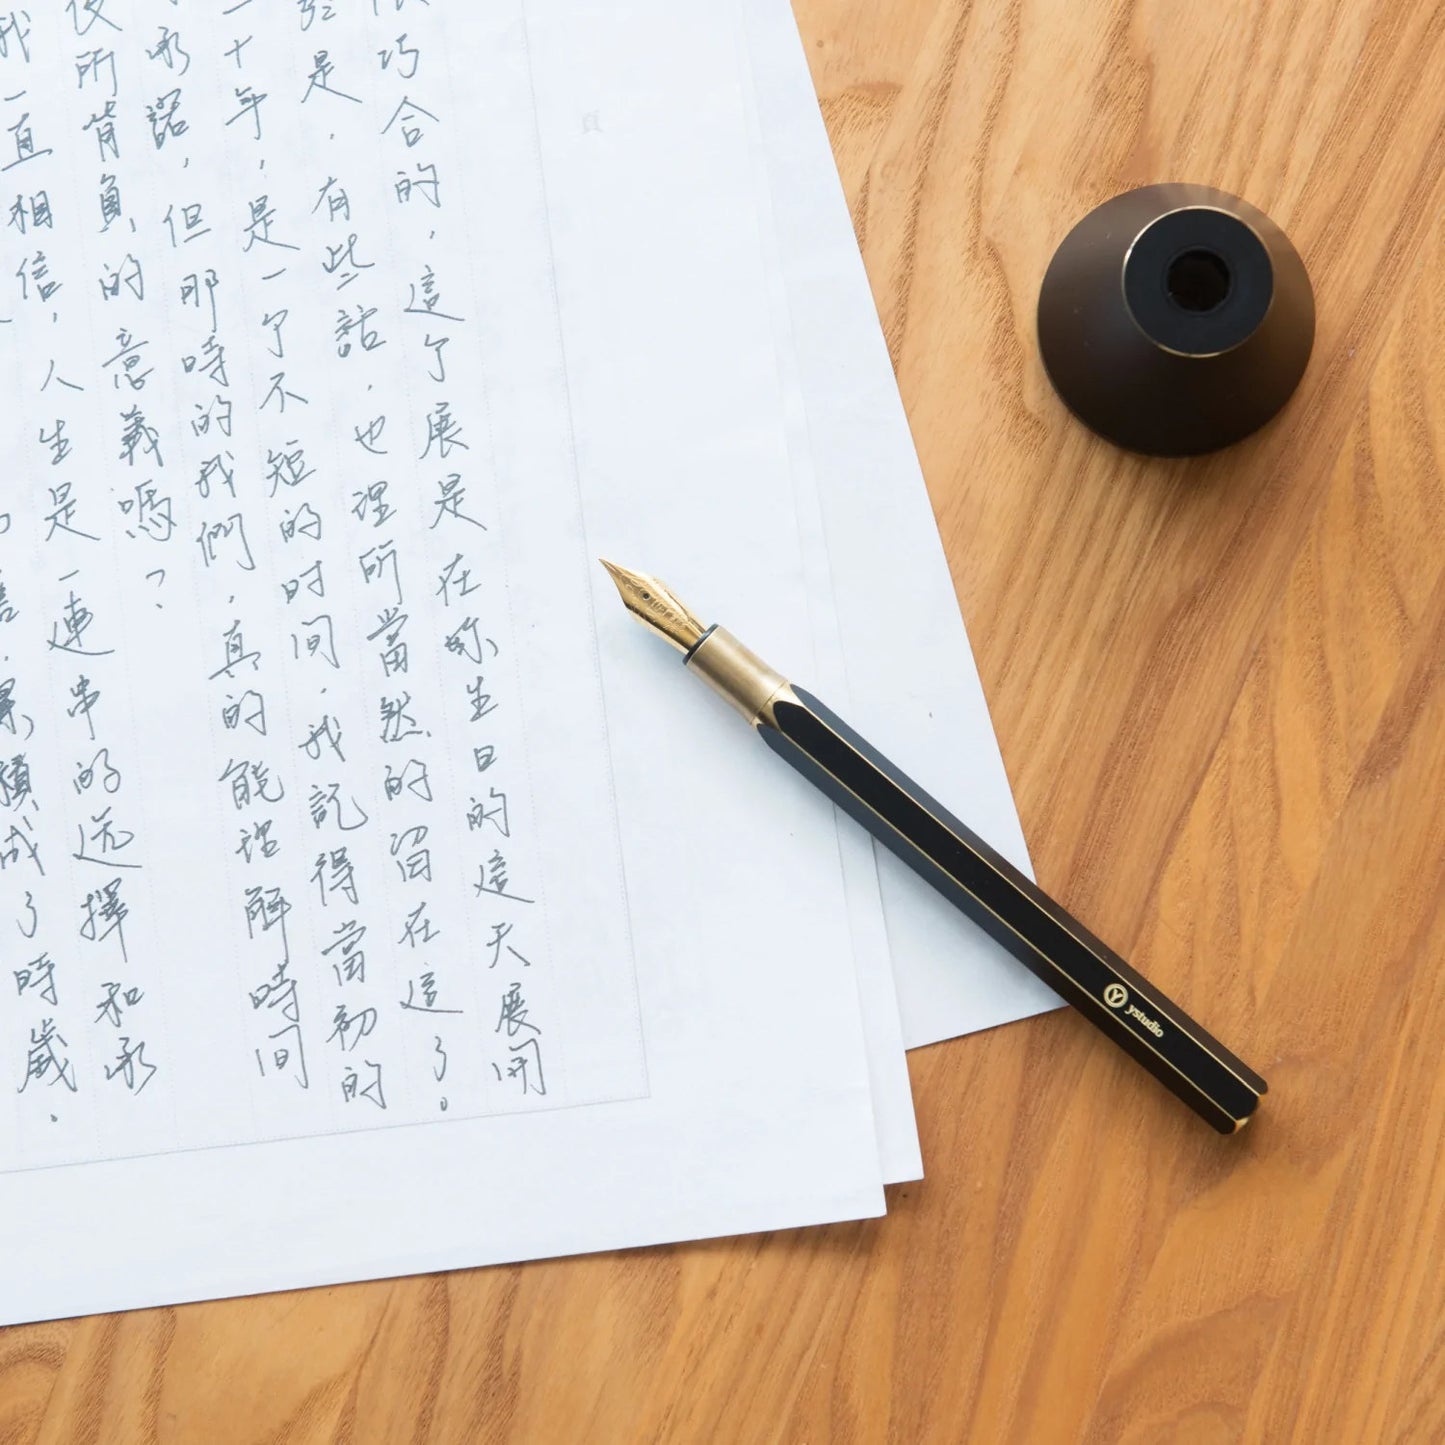 巧合的，這个展是在妳生日的這天展開
是，有些話，也理所當然的留在這了。
二十年，是一个不短的时间，我記得當初的
承諾，但那時的我們，真的能理解時间
所背負的意義嗎？
我一直相信，人生是一連串的选擇和承
累積成了時歲。
ystudio